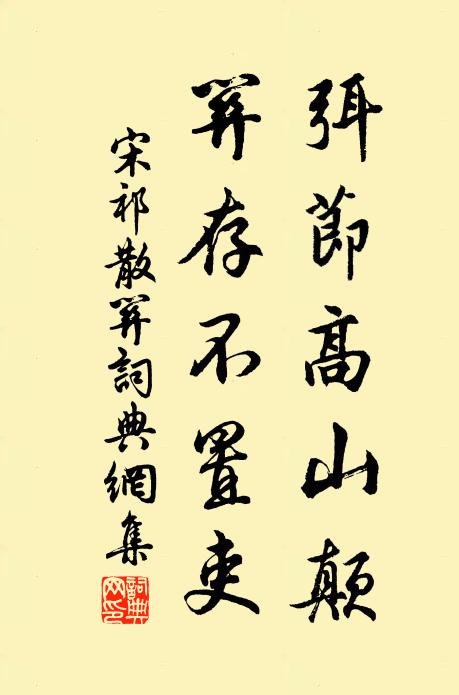 弭節高山顛
關存不置吏
宋祁散關詞典網集
詞典
网印